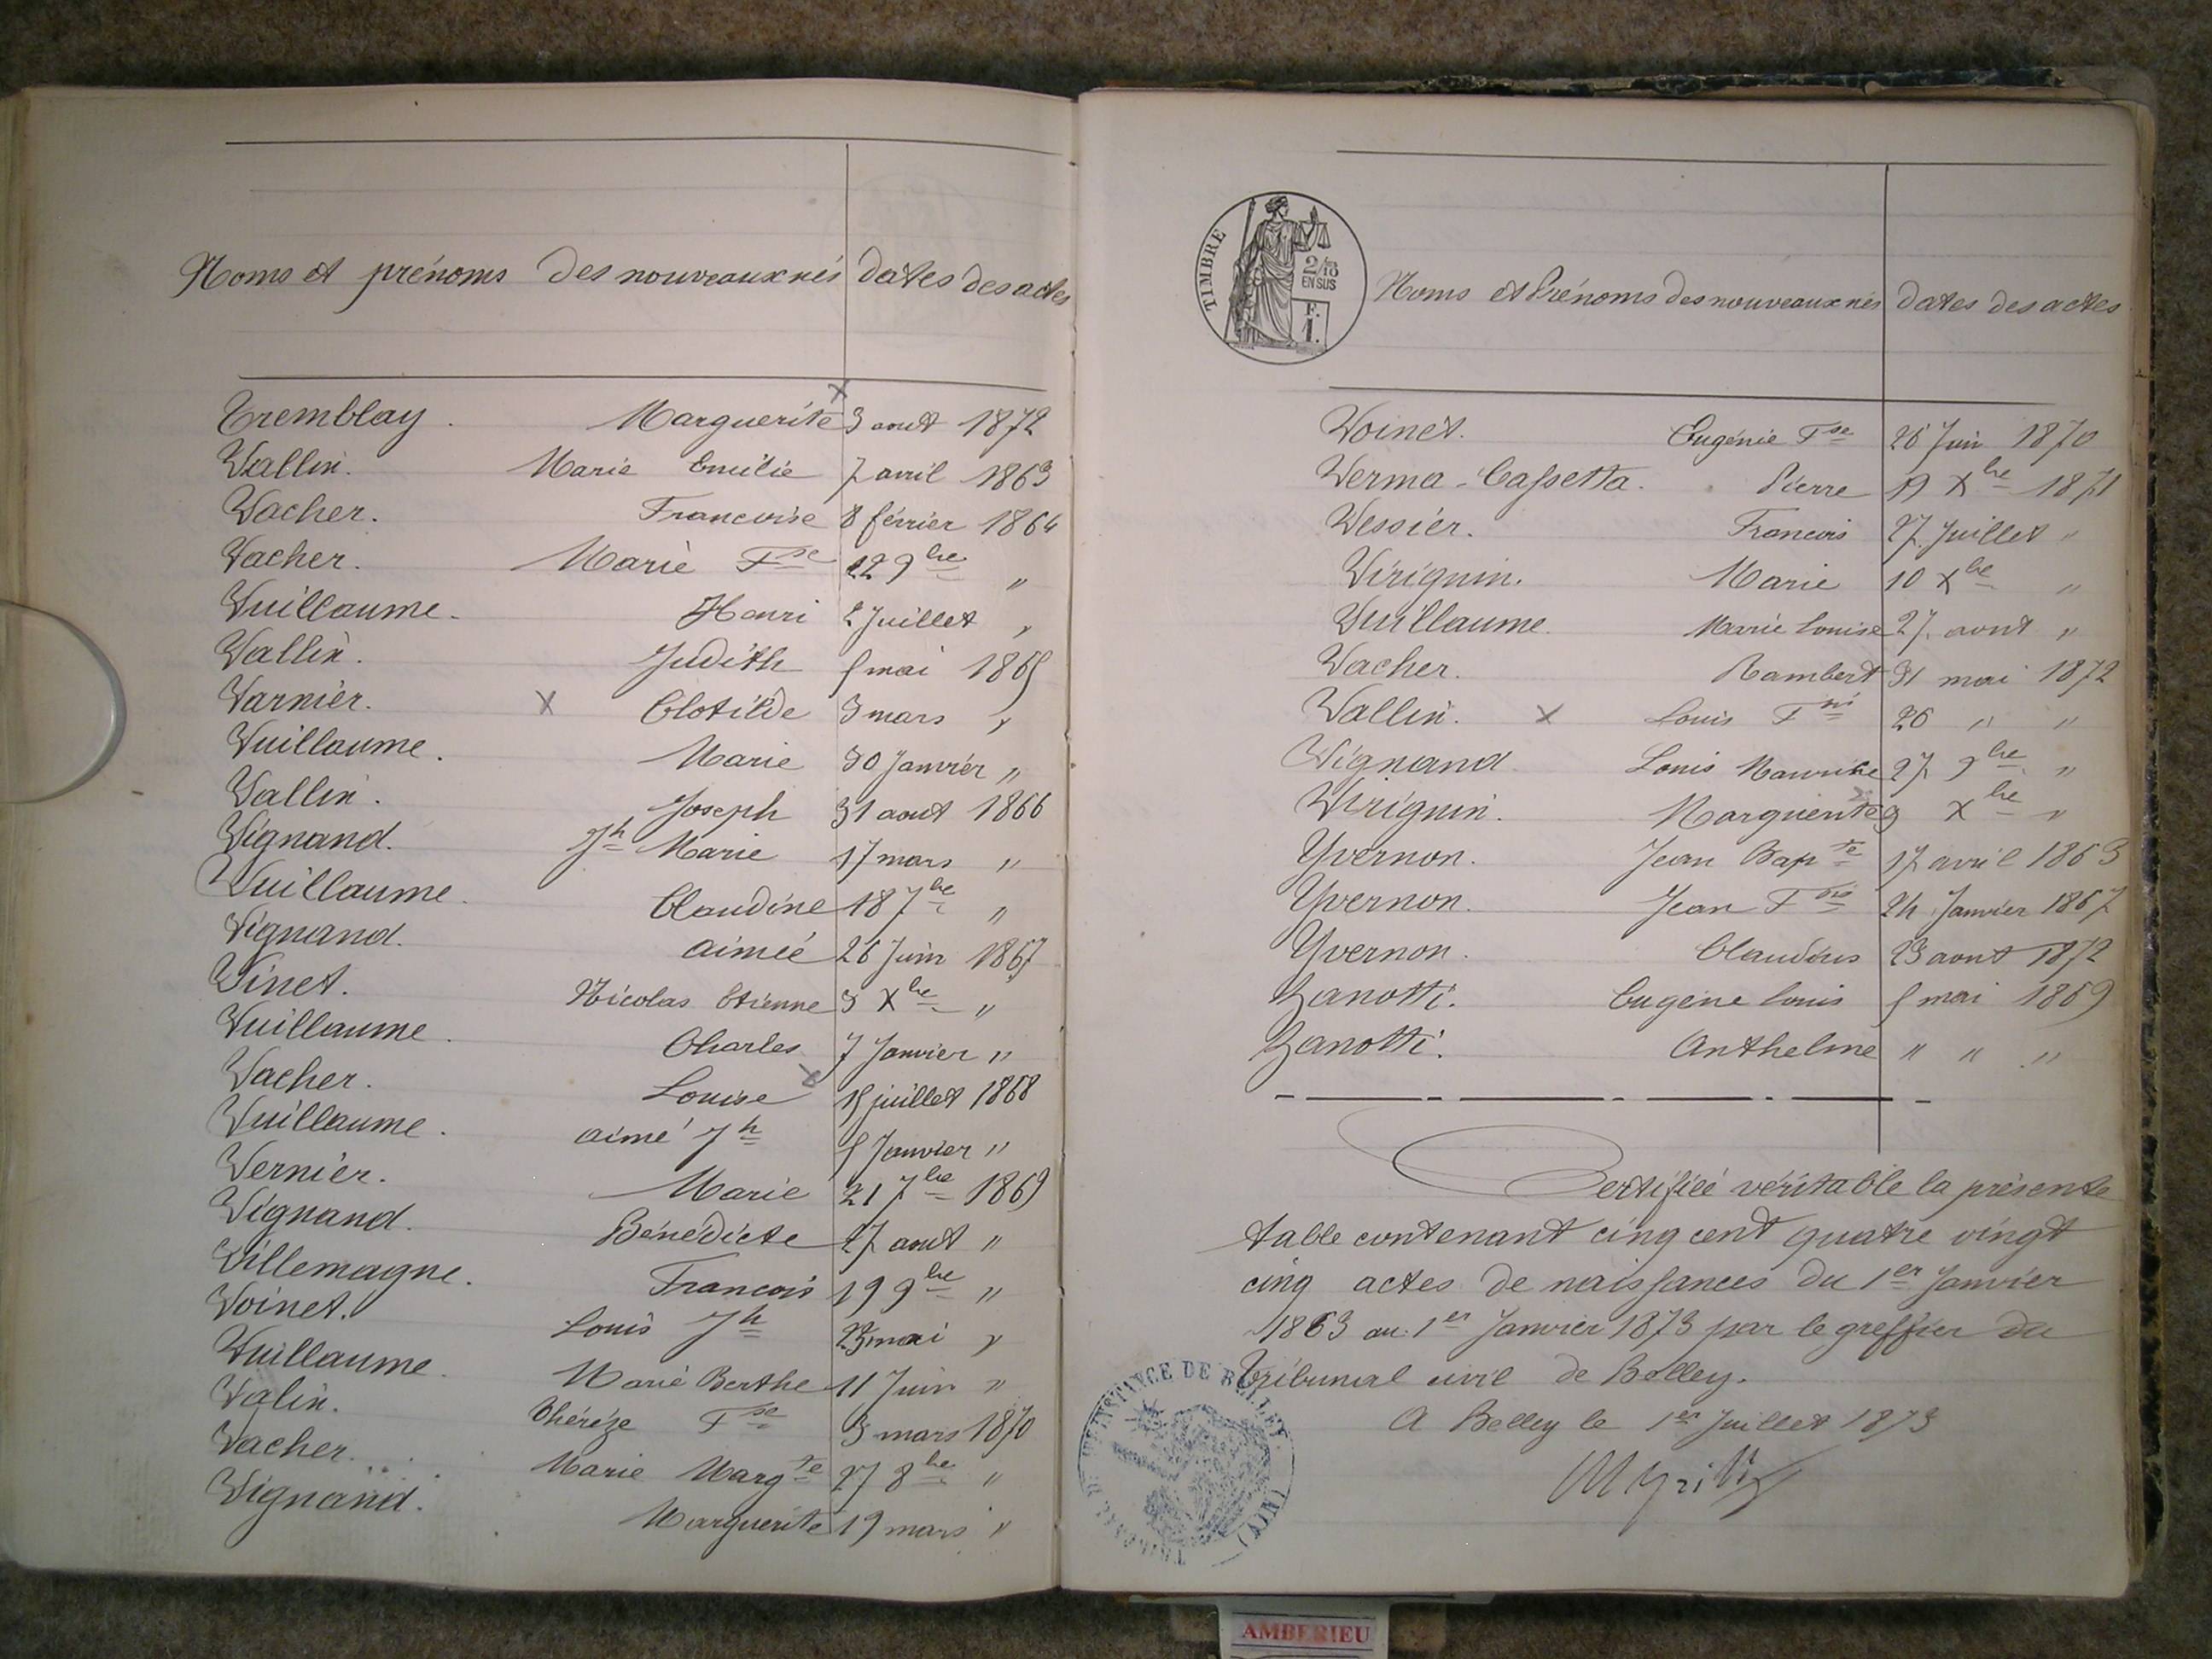 Noms et prénoms des nouveaux nés dates des actes
Tremblay. Marguerite 3 aout 1872
Vallin. Marie Emilie 7 avril 1863
Vacher. Francoise 8 février 1864
Vacher. Marie Fse 12 9bre "
Vuillaume. Henri 2 Juillet "
Vallin. Judith 5 mai 1865
Varnier. X Clotilde 3 mars "
Vuillaume. Marie 30 Janvier "
Vallin. Joseph 31 aout 1866
Vignand. Jh Marie 17 mars "
Vuillaume. Claudine 18 7bre "
Vignand. aimée 26 Juin 1867
Vinet. Nicolas Etienne 3 Xbre "
Vuillaume. Charles 7 Janvier "
Vacher. Louise 15 juillet 1868
Vuillaume. aimé Jh 5 Janvier "
Vernier. Marie 21 7bre 1869
Vignand. Bénédicte 27 aout "
Villemagne. Francois 19 9bre "
Voinet. Louis Jh 23 mai "
Vuillaume. Marie Berthe 11 Juin "
Valin. Thérèze Fse 3 mars 1870
Vacher. Marie Margte 27 8bre "
Vignand. Marguerite 19 mars "
TIMBRE
2/10
EN SUS
F.
1.
Noms et Prénoms des nouveaux nés dates des actes
Voinet. Eugénie Fse 26 Juin 1870
Verma-Cassetta. Pierre 19 Xbre 1871
Vessier. Francois 27 Juillet "
Viriguin. Marie 10 Xbre "
Vuillaume. Marie Louise 27 aout "
Vacher. Rambert 31 mai 1872
Vallin. X Louis Fois 26 " "
Vignand Louis Maurice 27 9bre "
Viriguin. Marguerite 9 Xbre "
Yvernon. Jean Bapte 17 avril 1863
Yvernon. Jean Fois 24 Janvier 1867
Yvernon. Claudius 23 aout 1872
Zanotti. Eugène Louis 5 mai 1869
Zanotti. Anthelme " " "
Certifiée véritable la présente
table contenant cinq cent quatre vingt
cinq actes de naissances du 1er Janvier
1863 au 1er Janvier 1873 par le greffier du
Tribunal civil de Belley.
A Belley le 1er Juillet 1873
TRIBUNAL DE 1ERE INSTANCE DE BELLEY (AIN)
AMBERIEU